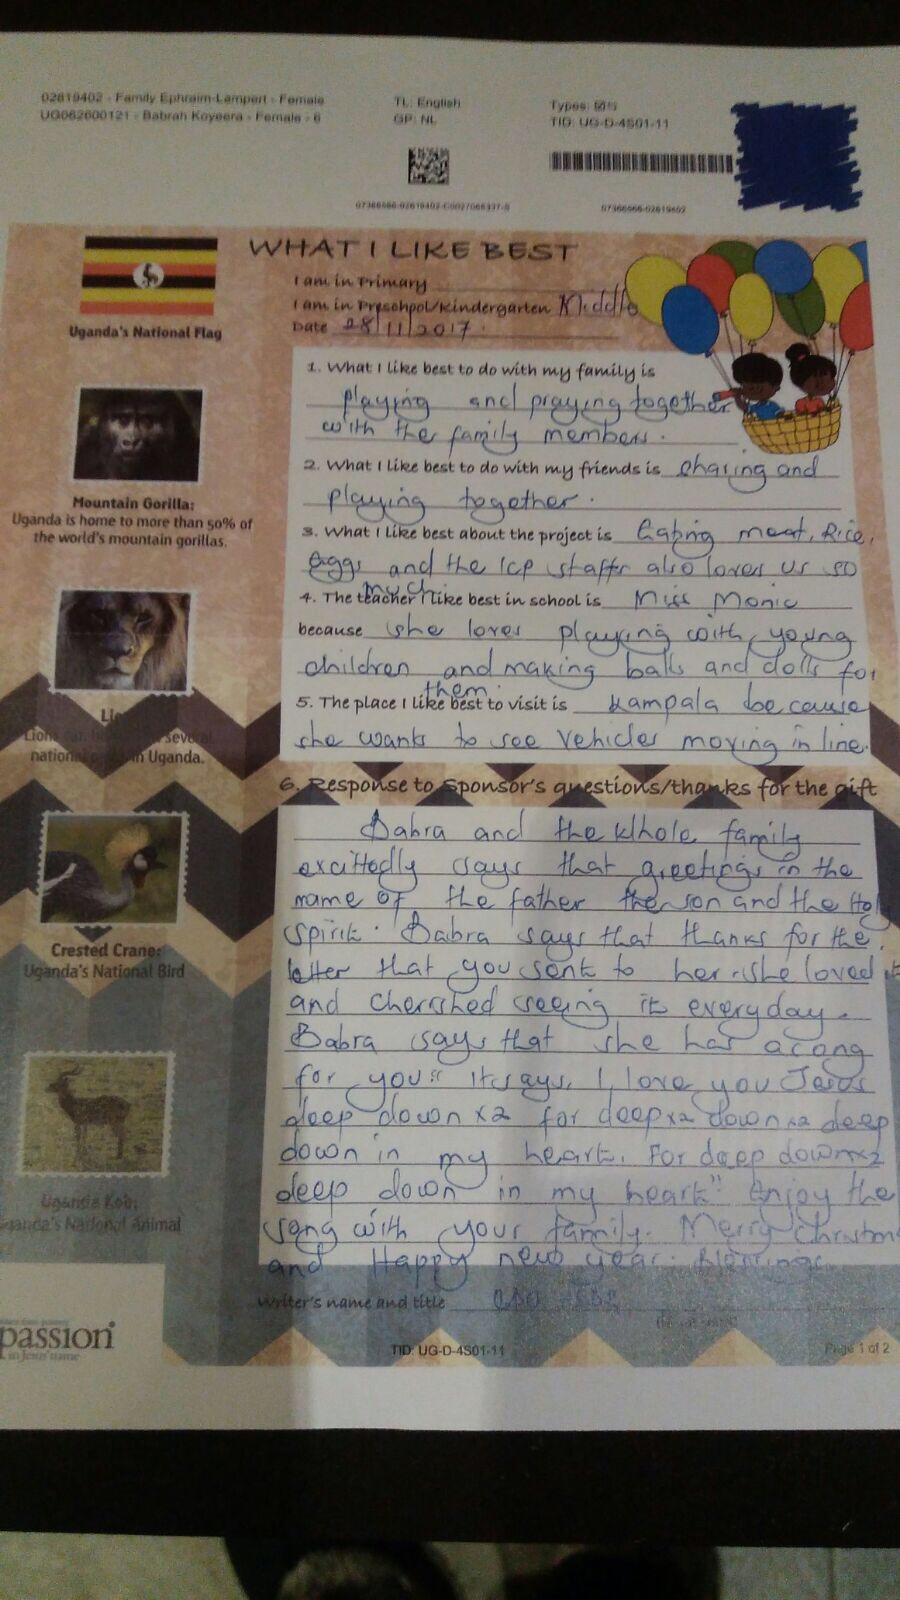 02819402 - Family Ephraim-Lampert - Female
UG062600121 - Babrah Koyeera - Female - 6
TL: English
GP: NL
Types:
TID: UG-D-4S01-11
07366666-02819402
WHAT I LIKE BEST
I am in Primary
I am in Preschool/Kindergarten Middle
Date 28/11/2017.
Uganda's National Flag
1. What I like best to do with my family is
playing and praying together
with the family members.
2. What I like best to do with my friends is sharing and
playing together.
3. What I like best about the project is Eating meat, Rice,
eggs and the ICP staffs also loves us so
much
4. The teacher I like best in school is Miss Monic
because she loves playing with young
children and making balls and dolls for
them.
5. The place I like best to visit is Kampala because
she wants to see vehicles moving in line.
Mountain Gorilla:
Uganda is home to more than 50% of
the world's mountain gorillas.
Lions can be several
national in Uganda.
Crested Crane:
Uganda's National Bird
Uganda Kob:
Uganda's National Animal
6. Response to Sponsor's questions/thanks for the gift
Babra and the Whole family
excittedly says that greetings in the
name of the father the son and the Holy
spirit. Babra says that thanks for the
letter that you sent to her. she loved it
and cherished seeing it everyday.
Babra says that she has a cong
for you" It says, I love you Jesus
deep down x2 for deep x2 down x2 deep
down in my heart. For deep down x2
deep down in my heart" Enjoy the
song with your family. Merry Christm
and Happy new year. Blessings
Writer's name and title
passion
in Jesus' name
TID: UG-D-4S01-11
Page 1 of 2